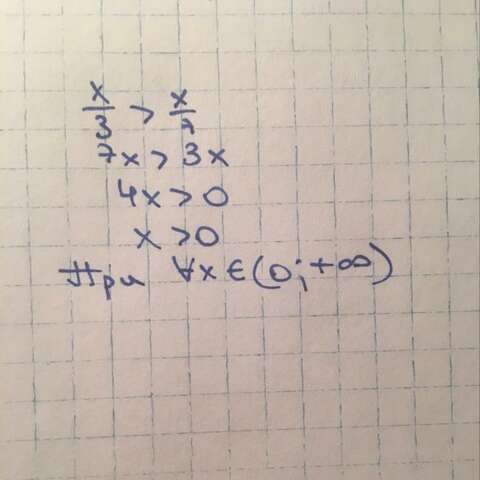 x/3 > x/7
7x > 3x
4x > 0
x > 0
При ∀x ∈ (0; +∞)